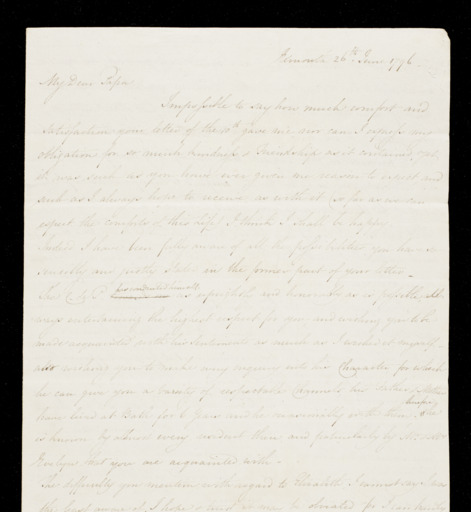 26th June 1796
My Dear Papa
Impossible to say how much comfort and
satisfaction your letter of the 10th gave me, nor can I express my
obligation for so much kindness & friendship as it contained, yet
it was such as you have ever given me reason to expect and
such as I always hope to receive as without it (so far as we can
expect the comforts of this life) I think I shall be happy
Indeed I have been fully aware of all the possibilities you have so
sincerely and justly stated in the former part of your letter.
as honourable as is possible, al
ways entertaining the highest respect for you and wishing you to be
made acquainted with his sentiments as much as I wished it myself
also wishing you to make any enquiry into his Character for which
he can give you a variety of respectable his Father & Mother
have lived at Bath for 6 years and he occasionally with them, & he
is known by almost every resident there and particularly by
that you are acquainted with.
The difficulty you mention with regard to Elizabeth I cannot say I was
the least aware of, I hope & trust it may be obviated for I can hardly